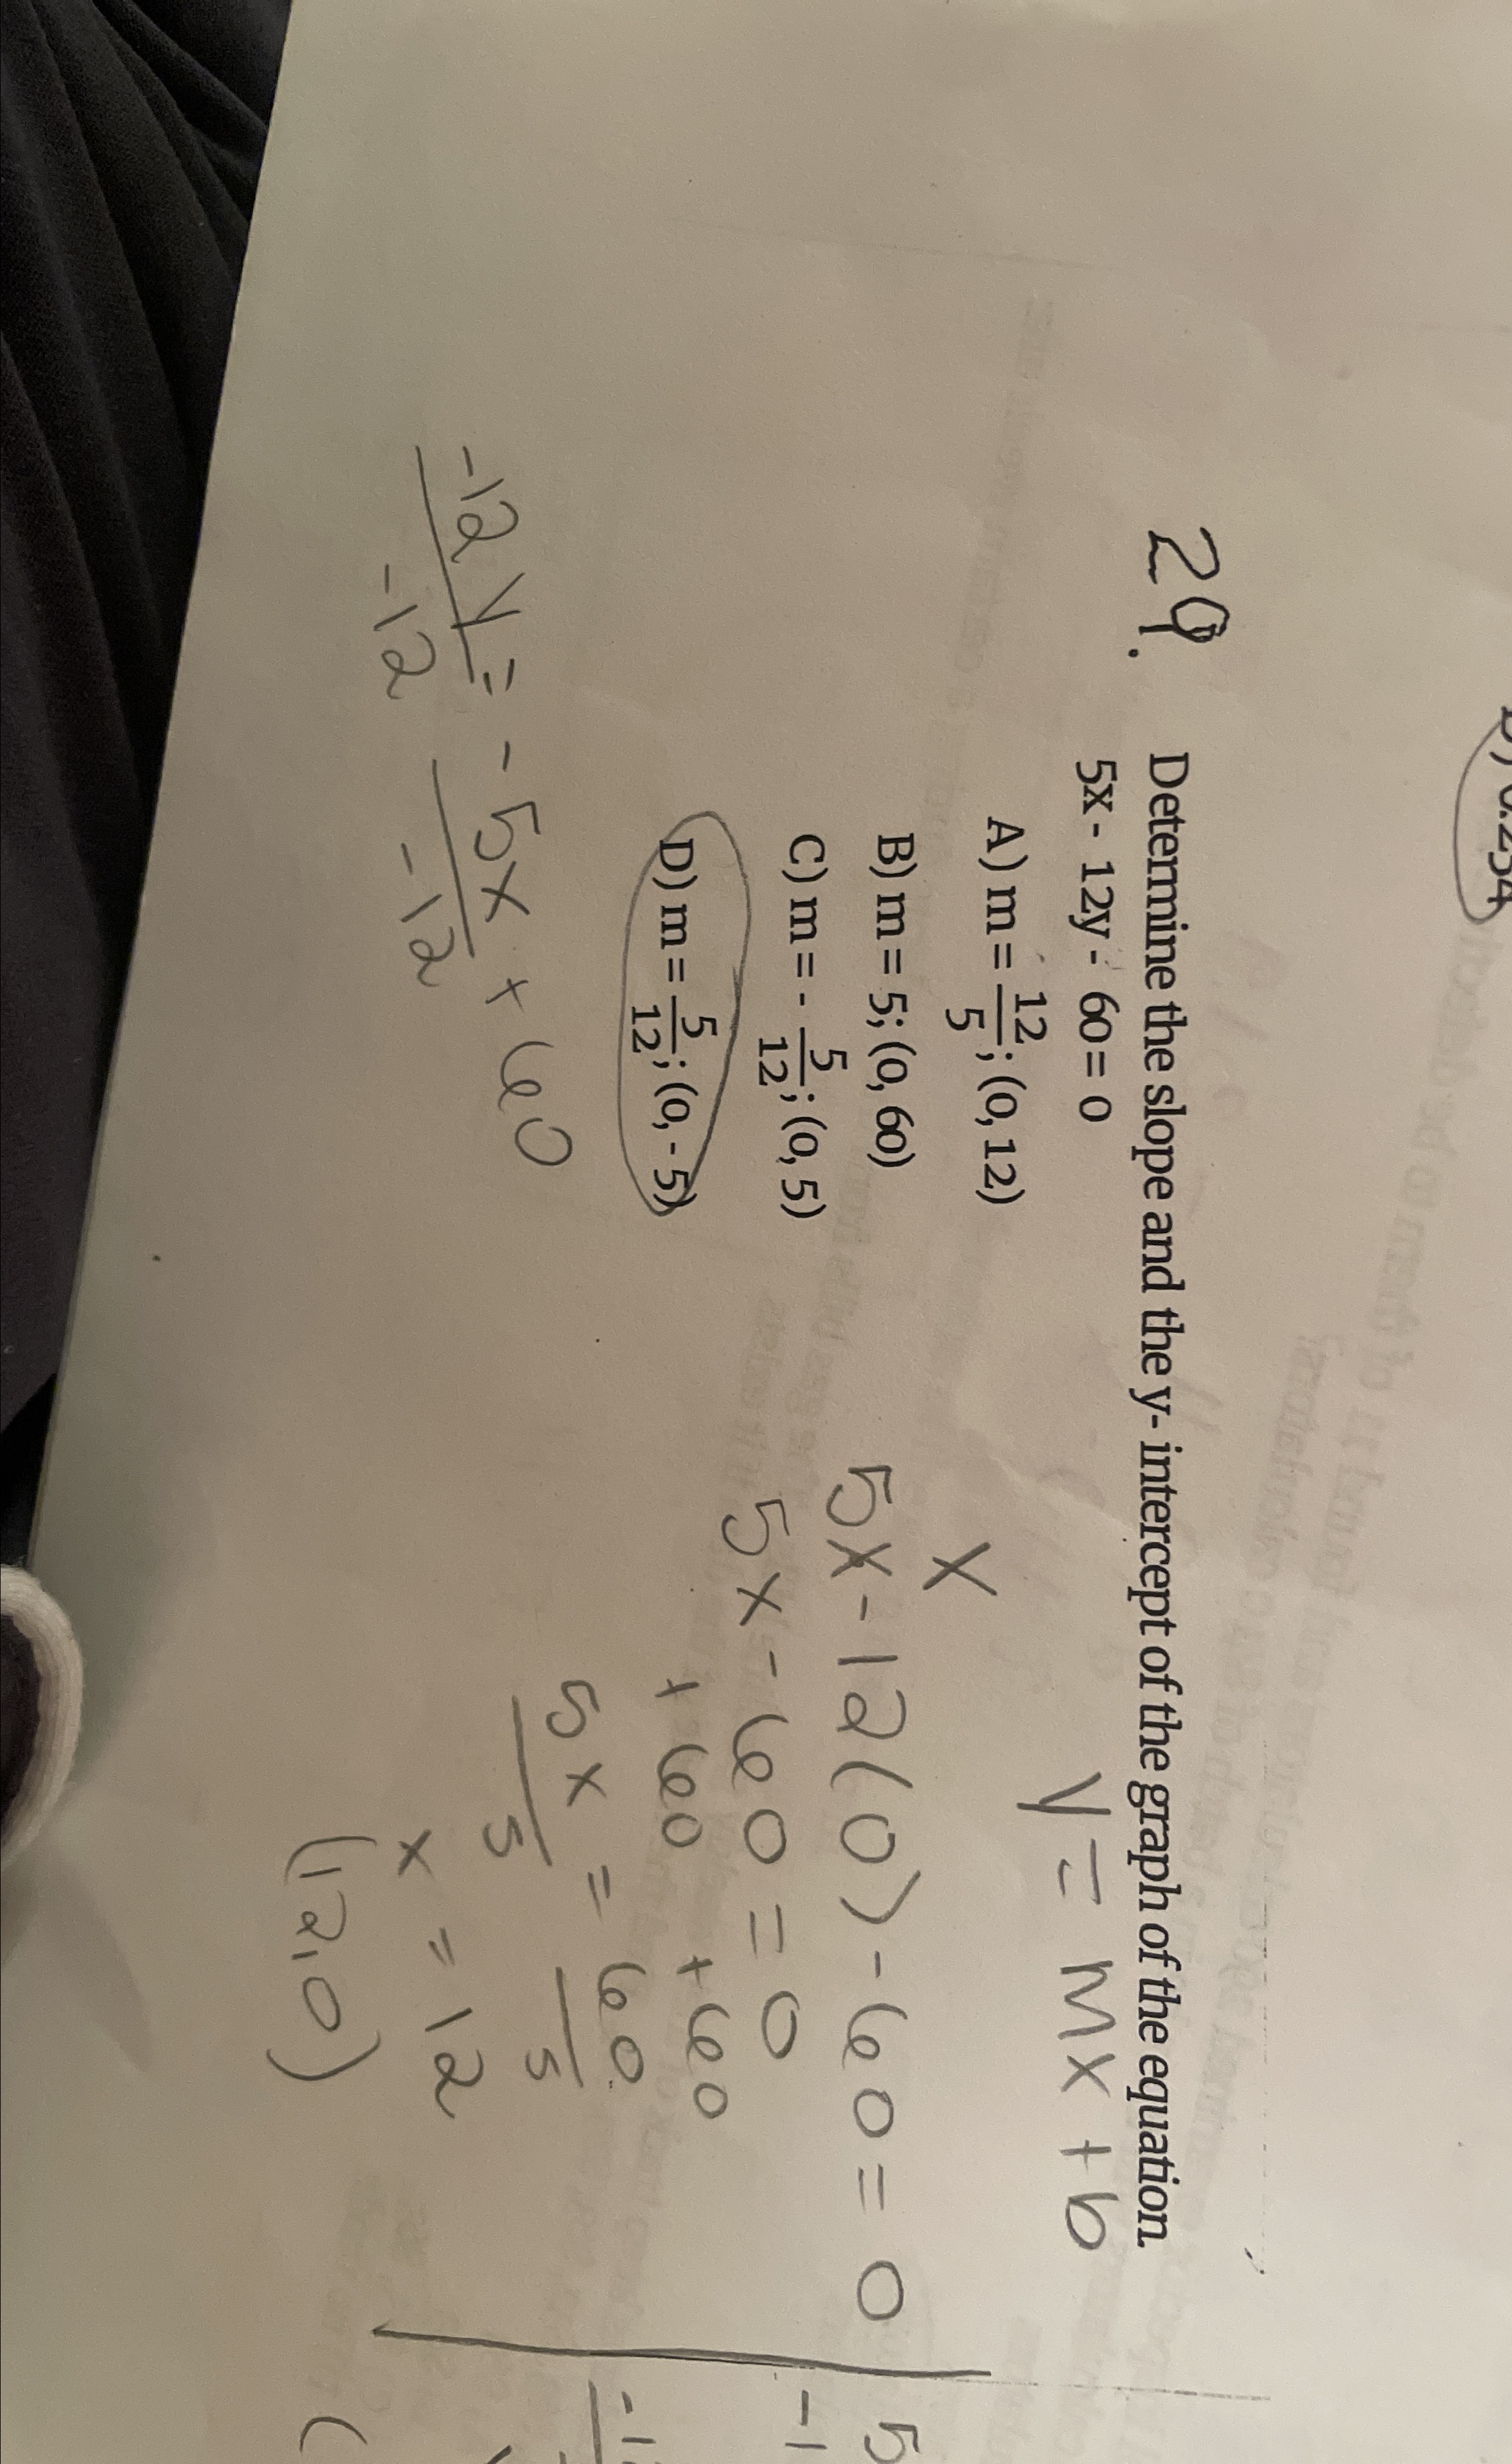 D) 0.234
29.
Determine the slope and the y- intercept of the graph of the equation.
5x - 12y - 60 = 0
y = mx + b
A) m = 12/5; (0, 12)
B) m = 5; (0, 60)
C) m = - 5/12; (0, 5)
D) m = 5/12; (0, - 5)
-12y = - 5x + 60
-12 -12
x
5x - 12(0) - 60 = 0
5x - 60 = 0
+ 60 +60
5x = 60
5 5
x = 12
(12,0)
5